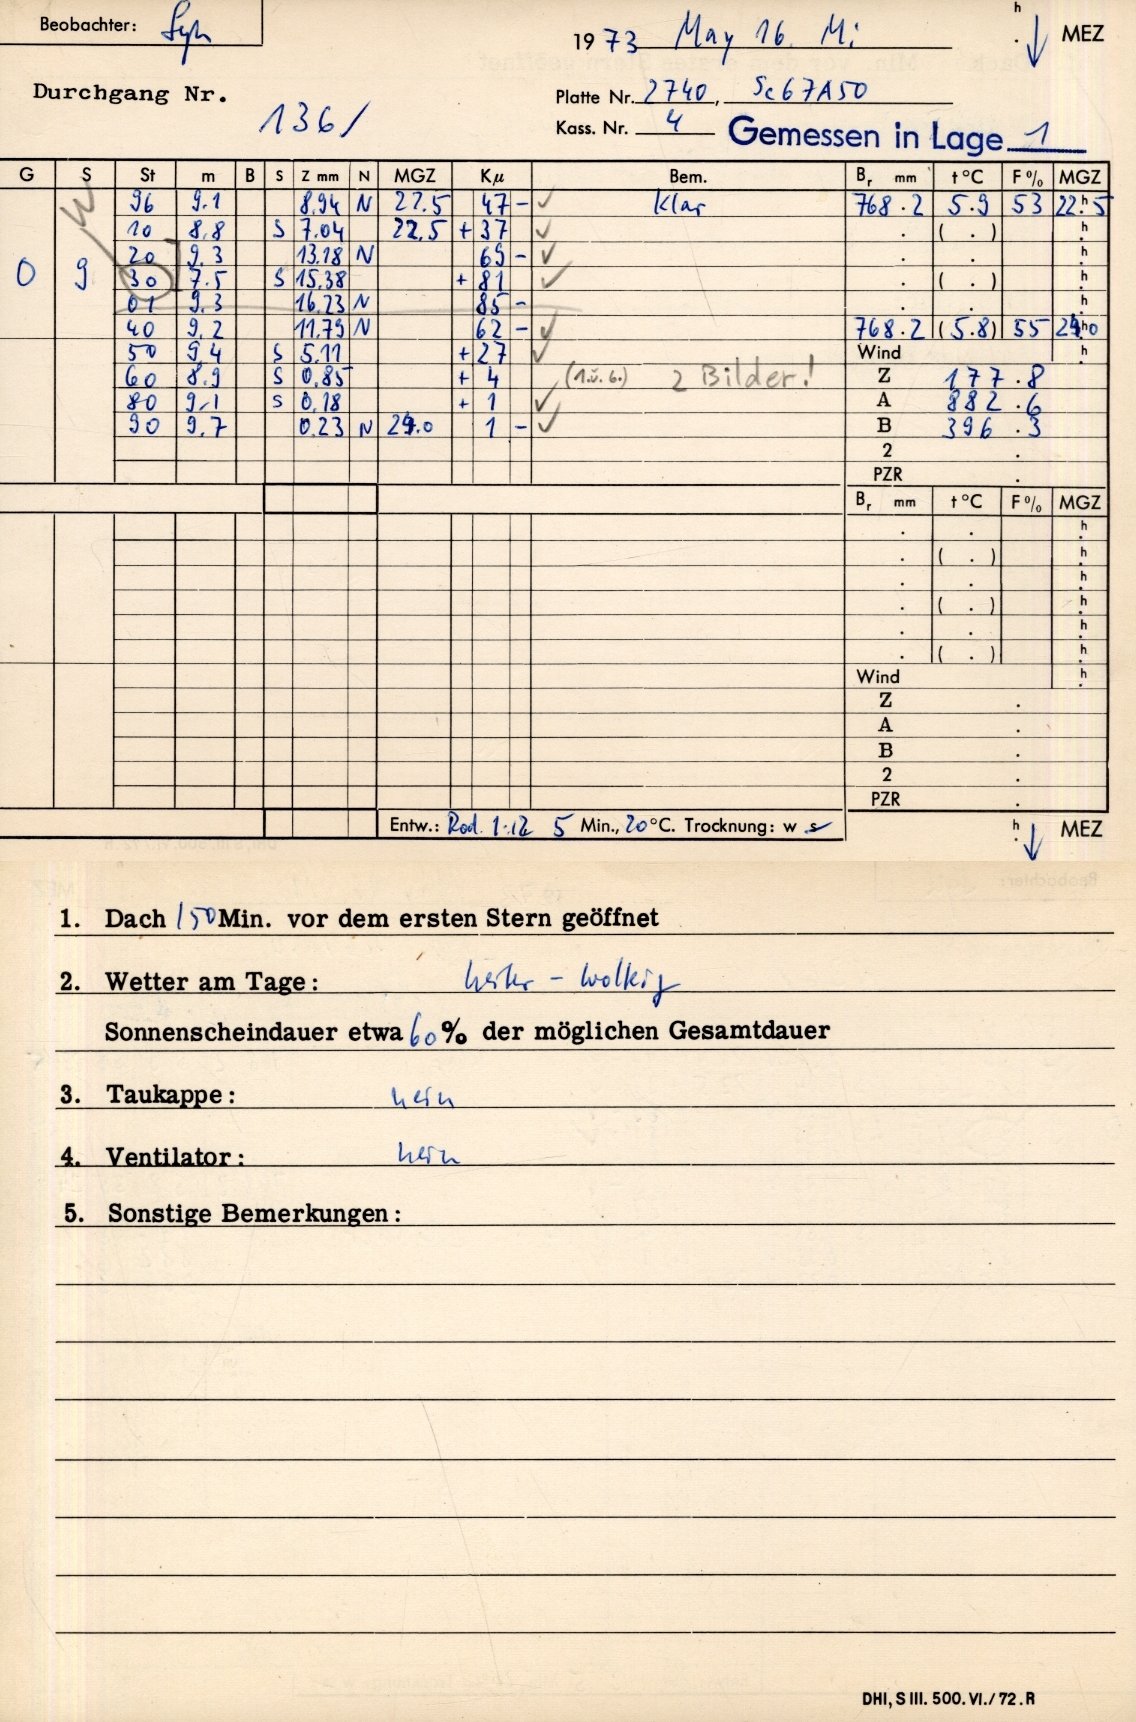 Beobachter:
1973 May 16. Mi h . MEZ
Durchgang Nr. 136/
Platte Nr. 2740, Sc67A50
Kass. Nr. 4 Gemessen in Lage 1
G S St m B S Z mm N MGZ Kμ Bem. Br mm t °C F % MGZ
W 96 9.1 8.94 N 22.5 47 - ✓ klar 768.2 5.9 53 22.h5
10 8.8 S 7.04 22.5 + 37 ✓ . ( . ) h
20 9.3 13.18 N 69 - ✓ . . h
0 9 30 7.5 S 15.38 + 81 ✓ . ( . ) h
01 9.3 16.23 N 85 - . . h
40 9.2 11.79 N 62 - ✓ 768.2 (5.8) 55 24.h0
50 9.4 S 5.11 + 27 ✓ Wind h
60 8.9 S 0.85 + 4 (1.u.6.) 2 Bilder! Z 177.8
80 9.1 S 0.18 + 1 ✓ A 882.6
90 9.7 0.23 N 24.0 1 - ✓ B 396.3
2 .
PZR .
Br mm t °C F % MGZ
. . h
. ( . ) h
. . h
. ( . ) h
. . h
. ( . ) h
Wind h
Z .
A .
B .
2 .
PZR .
Entw.: Rod. 1:12 5 Min., 20 °C. Trocknung: w s h MEZ
1. Dach 150 Min. vor dem ersten Stern geöffnet
2. Wetter am Tage: heiter - wolkig
Sonnenscheindauer etwa 60 % der möglichen Gesamtdauer
3. Taukappe: nein
4. Ventilator: nein
5. Sonstige Bemerkungen:
DHI, S III. 500. VI./72. R